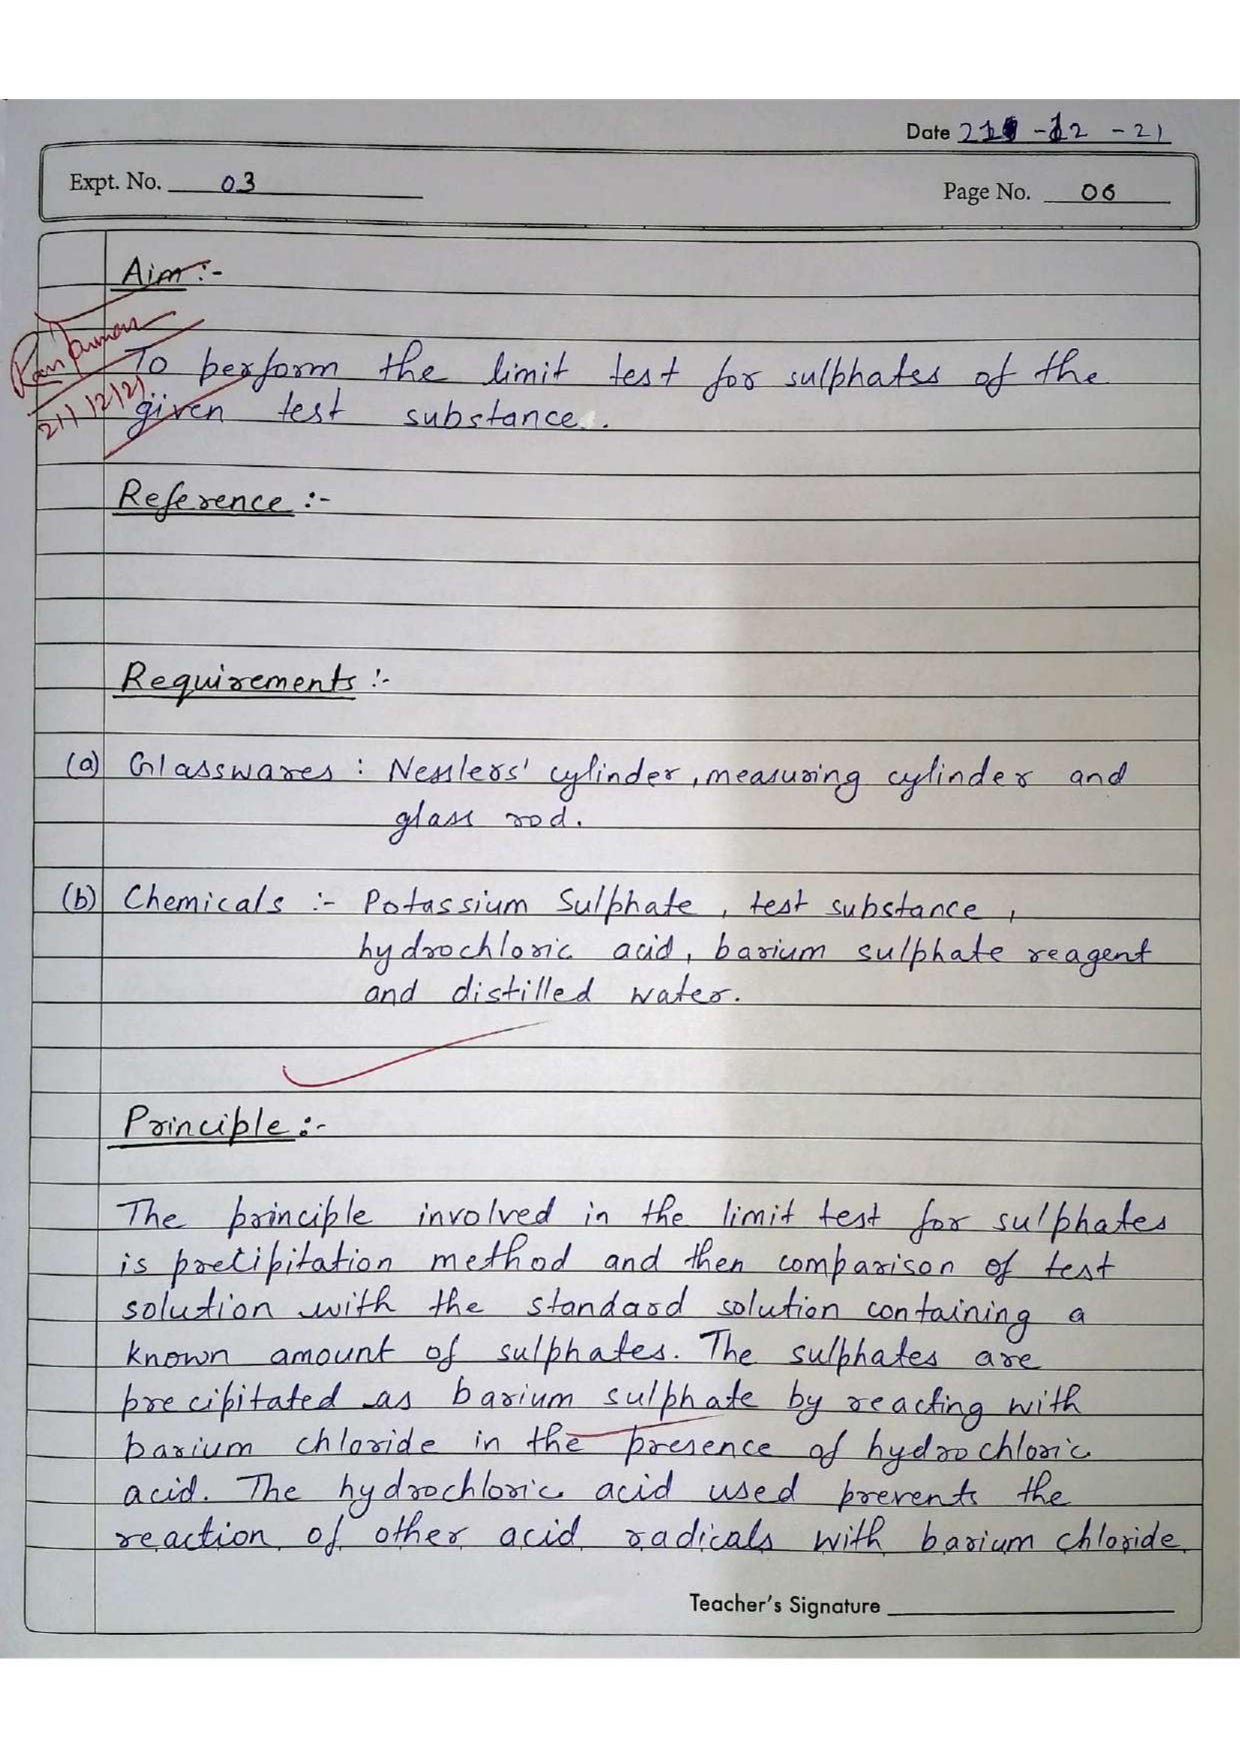 Date 21 -12 -21
Expt. No. 03
Page No. 06
Aim :-
21/12/21
To perform the limit test for sulphates of the
given test substance.
Reference :-
Requirements :-
(a) Glasswares : Nesslers' cylinder, measuring cylinder and
glass rod.
(b) Chemicals :- Potassium Sulphate, test substance,
hydrochloric acid, barium sulphate reagent
and distilled water.
Principle :-
The principle involved in the limit test for sulphates
is precipitation method and then comparison of test
solution with the standard solution containing a
known amount of sulphates. The sulphates are
precipitated as barium sulphate by reacting with
barium chloride in the presence of hydrochloric
acid. The hydrochloric acid used prevents the
reaction of other acid radicals with barium chloride.
Teacher's Signature